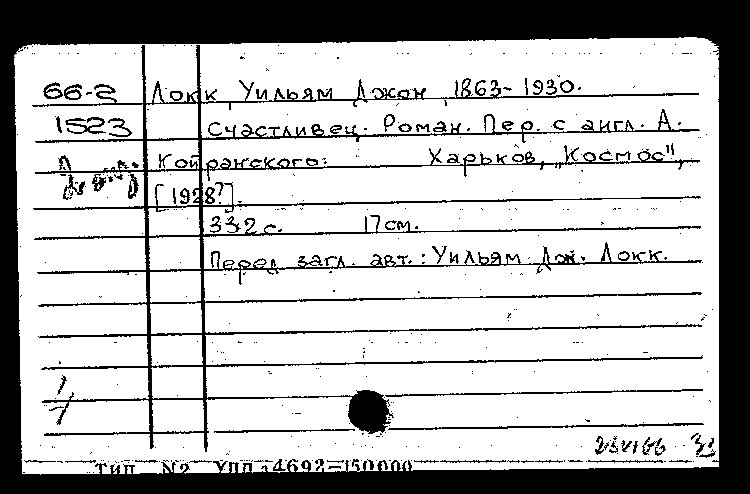 66-2 Локк, Уильям Джон, 1863-1930.
1523 Счастливец. Роман. Пер. с англ. А.
Койранского. Харьков, "Космос",
[1928?].
332 с. 17 см.
Перед загл. авт.: Уильям Дж. Локк.
1/1
ТИП. N2 УПЛ 4692—150000